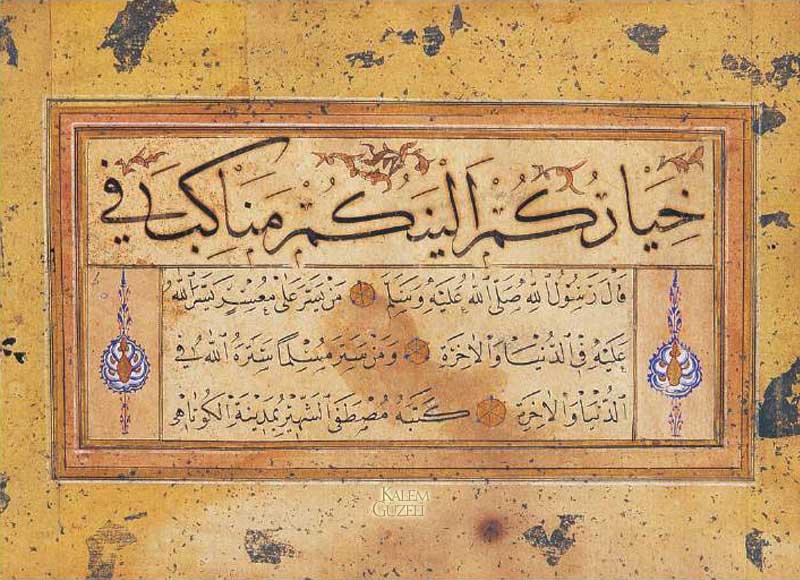 خِيَارُكُمْ اَلْيَنُكُمْ مَنَاكِبَ فِي
قَالَ رَسُولُ اللهِ صَلَّى اللهُ عَلَيْهِ وَسَلَّمَ مَنْ يَسَّرَ عَلَى مُعْسِرٍ يَسَّرَ اللهُ
عَلَيْهِ فِي الدُّنْيَا وَالْاٰخِرَةِ وَمَنْ سَتَرَ مُسْلِمًا سَتَرَهُ اللهُ فِي
الدُّنْيَا وَالْاٰخِرَةِ كَتَبَهُ مُصْطَفَى الشَّهِيرُ بِمَدِينَةِ الْكُوتَاهِي
KALEM
GÜZELİ